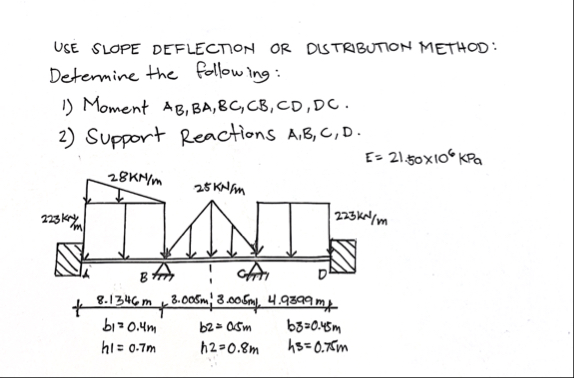 USE SLOPE DEFLECTION OR DISTRIBUTION METHOD:
Determine the following:
1) Moment AB, BA, BC, CB, CD, DC.
2) Support Reactions A, B, C, D.
E = 21.50x10⁶ KPa
28KN/m
25 KN/m
223 KN/m
223 KN/m
A
B
C
D
8.1346 m
3.005m
3.005m
4.9399 m
b1 = 0.4m
b2 = 0.5m
b3=0.45m
h1 = 0.7m
h2=0.8m
h3=0.75m